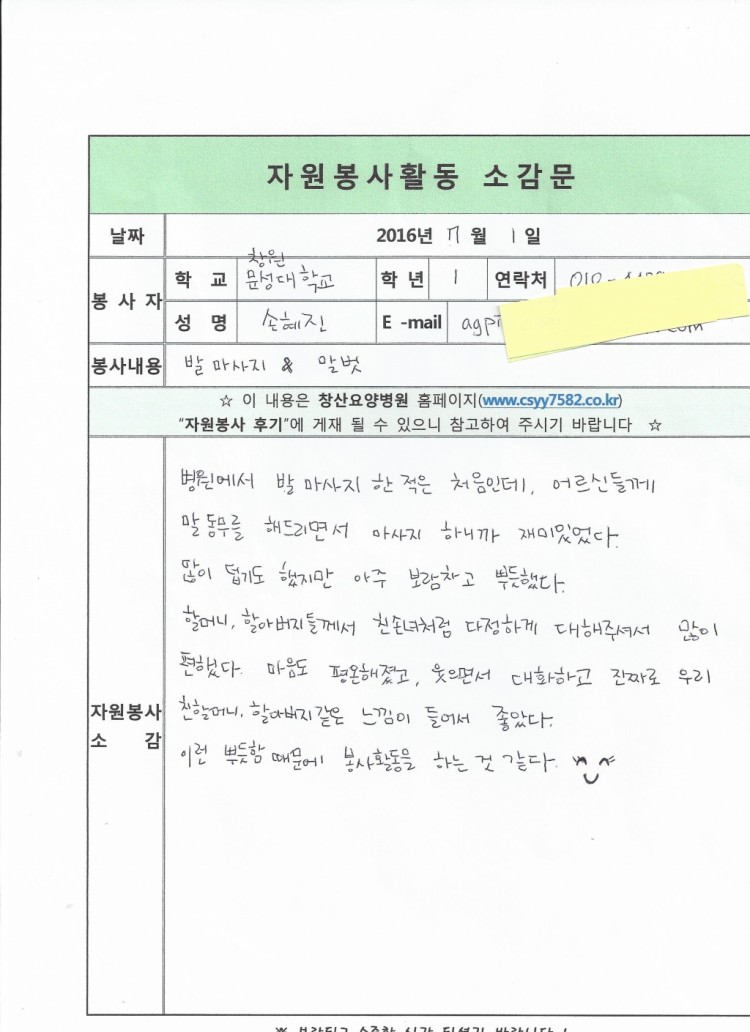 자원봉사활동 소감문
날짜 2016년 7월 1일
봉사자 학 교 창원 문성대학교 학년 1 연락처 010-
성 명 손혜진 E-mail
봉사내용 발 마사지 & 말벗
☆ 이 내용은 창산요양병원 홈페이지(www.csyy7582.co.kr)
“자원봉사 후기”에 게재 될 수 있으니 참고하여 주시기 바랍니다 ☆
자원봉사 소 감
병원에서 발 마사지 한 적은 처음인데, 어르신들께
말동무를 해드리면서 마사지 하니까 재미있었다.
많이 덥기도 했지만 아주 보람차고 뿌듯했다.
할머니, 할아버지들께서 친손녀처럼 다정하게 대해주셔서 많이
편했다. 마음도 평온해졌고, 웃으면서 대화하고 진짜로 우리
친할머니, 할아버지같은 느낌이 들어서 좋았다.
이런 뿌듯함 때문에 봉사활동을 하는 것 같다.